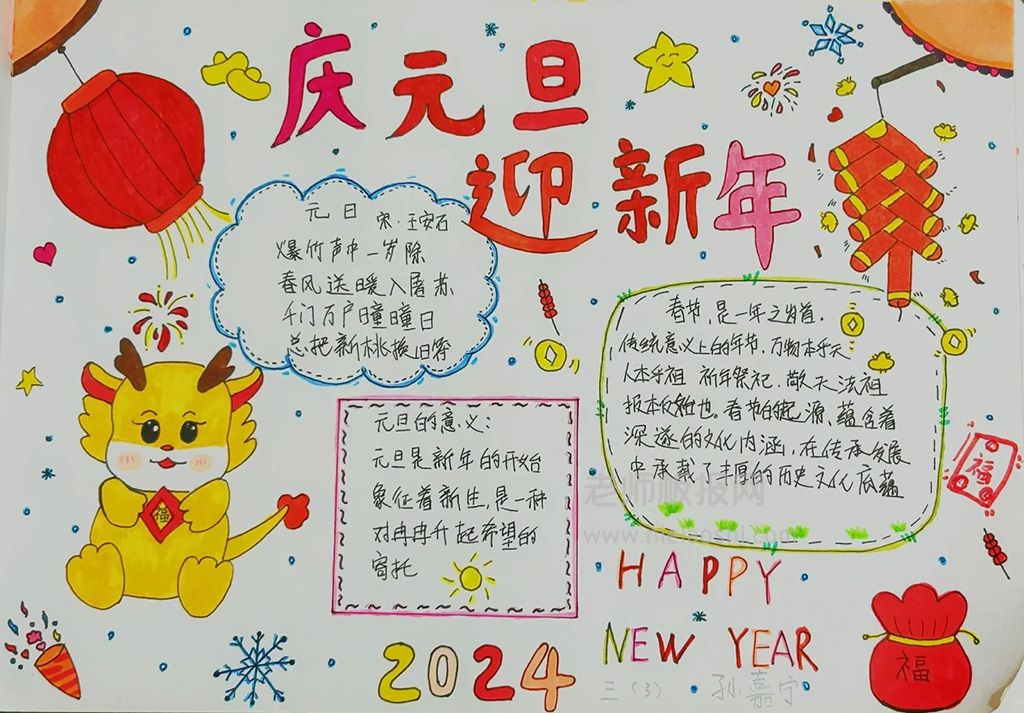 庆元旦
迎新年
元日
宋·王安石
爆竹声中一岁除
春风送暖入屠苏
千门万户曈曈日
总把新桃换旧符
元旦的意义：
元旦是新年的开始
象征着新生，是一种
对冉冉升起希望的
寄托
春节，是一年之岁首，
传统意义上的年节．万物本乎天
人本乎祖 祈年祭祀．敬天法祖
报本反始也。春节的起源，蕴含着
深邃的文化内涵，在传承发展
中承载了丰厚的历史文化底蕴
福
福
福
老师板报网
HAPPY
NEW YEAR
2024
三（3） 孙嘉宁